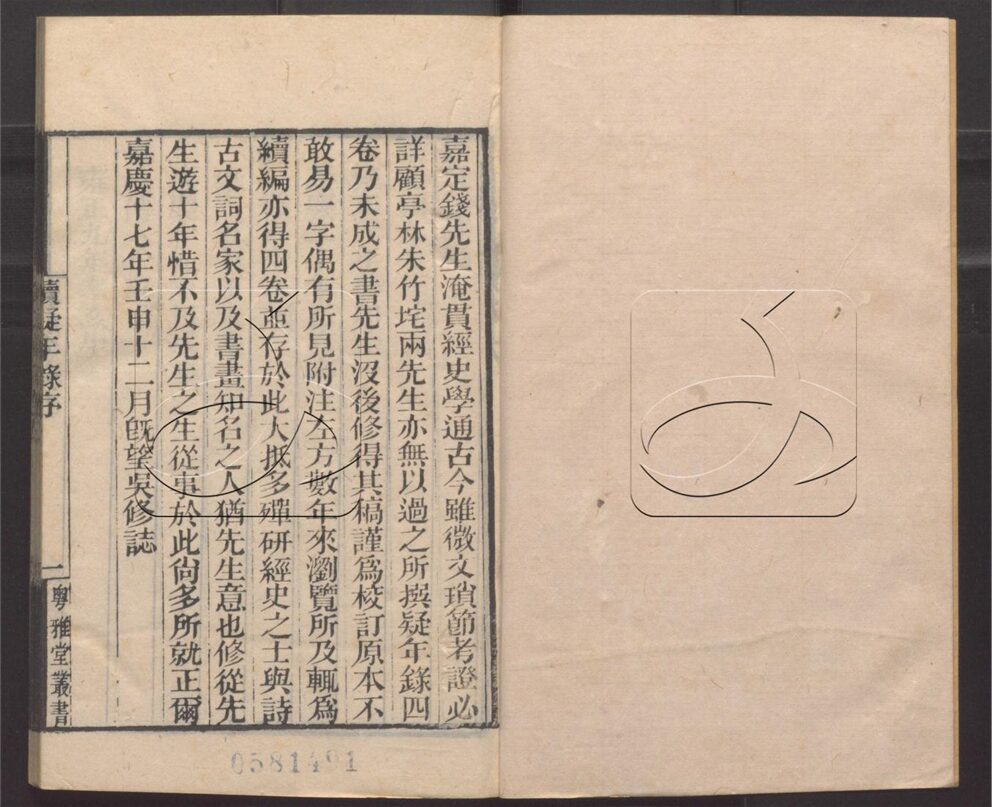 嘉定錢先生淹貫經史學通古今雖微文瑣節考證必
詳顧亭林朱竹垞兩先生亦無以過之所撰疑年錄四
卷乃未成之書先生沒後修得其稿謹爲校訂原本不
敢易一字偶有所見附注左方數年來瀏覽所及輒爲
續編亦得四卷並存於此大抵多殫研經史之士與詩
古文詞名家以及書畫知名之人猶先生意也修從先
生遊十年惜不及先生之生從事於此尙多所就正爾
嘉慶十七年壬申十二月旣望吳修誌
續疑年錄序
一
粵雅堂叢書
0581491